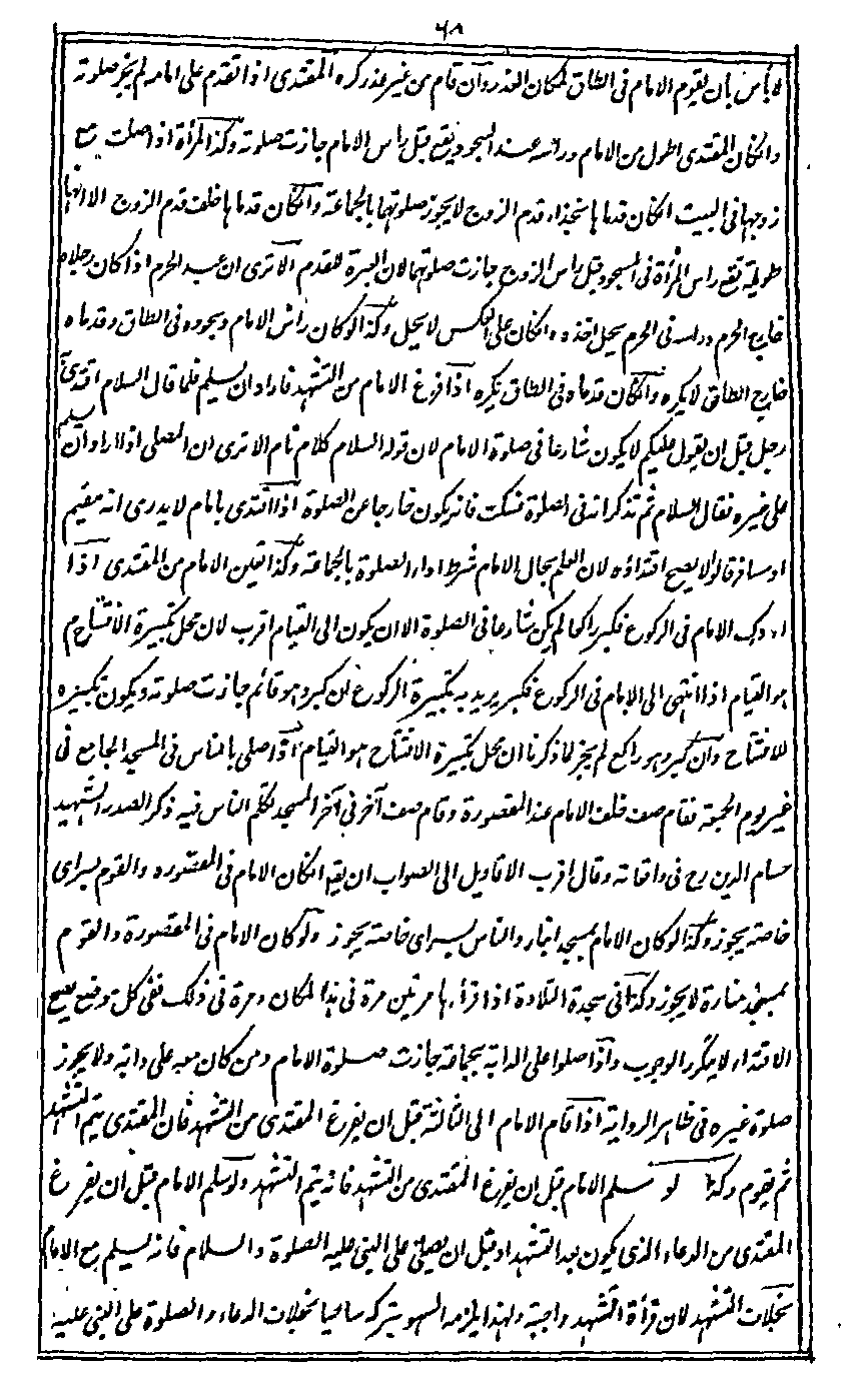 ٦٨
لا بأس بان يقوم الامام فى الطاق لمكان العذر وان قام من غير عذر كره المقتدى اذا تقدم على امامه لم يجز صلوته
وان كان المقتدى اطول من الامام وراسه عند السجود يقع قبل راس الامام جازت صلوته وكذا المرأة اذا صلت مع
زوجها فى البيت ان كان قدماها بحذاء قدم الزوج لا يجوز صلوتها بالجماعة وان كان قدماها خلف قدم الزوج الا انها
طويلة تقع راس المرأة فى السجود قبل راس الزوج جازت صلوتهما لان العبرة للقدم الا ترى ان صيد الحرم اذا كان رجلاه
خارج الحرم وراسه فى الحرم يحل اخذه وان كان على العكس لا يحل وكذا لو كان راس الامام وسجوده فى الطاق وقدماه
خارج الطاق لا يكره وان كان قدماه فى الطاق يكره اذا فرغ الامام من التشهد فاراد ان يسلم فلما قال السلام اقتدى
رجل قبل ان يقول عليكم لا يكون شارعا فى صلوة الامام لان قوله السلام كلام تام الا ترى ان المصلى اذا اراد ان يسلم
على غيره فقال السلام ثم تذكر انه فى الصلوة فسكت فانه يكون خارجا عن الصلوة اذا اقتدى بامام لا يدرى انه مقيم
او مسافر قالوا لا يصح اقتداؤه لان العلم بحال الامام شرط اداء الصلوة بالجماعة وكذا تعين الامام من المقتدى اذا
ادرك الامام فى الركوع فكبر راكعا لم يكن شارعا فى الصلوة الا ان يكون الى القيام اقرب لان محل تكبيرة الافتتاح
هو القيام اذا انتهى الى الامام فى الركوع فكبر يريد به تكبيرة الركوع ان كبر وهو قائم جازت صلوته ويكون تكبيره
للافتتاح وان كبر وهو راكع لم يجز لما ذكرنا ان محل تكبيرة الافتتاح هو القيام اذا صلى بالناس فى المسجد الجامع فى
غير يوم الجمعة فقام صف خلف الامام عند المقصورة وقام صف آخر فى آخر المسجد تكلم الناس فيه ذكر الصدر الشهيد
حسام الدين رح فى واقعاته وقال اقرب الاقاويل الى الصواب ان يقال ان كان الامام فى المقصوره والقوم بسراى
خاصة يجوز وكذا لو كان الامام بمسجد انبار والناس بسراى خاصة يجوز ولو كان الامام فى المقصورة والقوم
بمسجد منارة لا يجوز وكذا فى سجدة التلاوة اذا قرأها مرتين مرة فى هذا المكان ومرة فى ذلك ففى كل موضع يصح
الاقتداء لا يتكرر الوجوب واذا صلوا على الدابة بجماعة جازت صلوة الامام ومن كان معه على دابه ولا يجوز
صلوة غيره فى ظاهر الرواية اذا قام الامام الى الثالثة قبل ان يفرغ المقتدى من التشهد فان المقتدى يتم التشهد
ثم يقوم وكذا لو سلم الامام قبل ان يفرغ المقتدى من التشهد فانه يتم التشهد ولو سلم الامام قبل ان يفرغ
المقتدى من الدعاء الذى يكون بعد التشهد او قبل ان يصلى على النبى عليه الصلوة والسلام فانه يسلم مع الامام
بخلاف التشهد لان قرأة التشهد واجبة ولهذا يلزمه السهو بتركه ساهيا بخلاف الدعاء والصلوة على النبى عليه